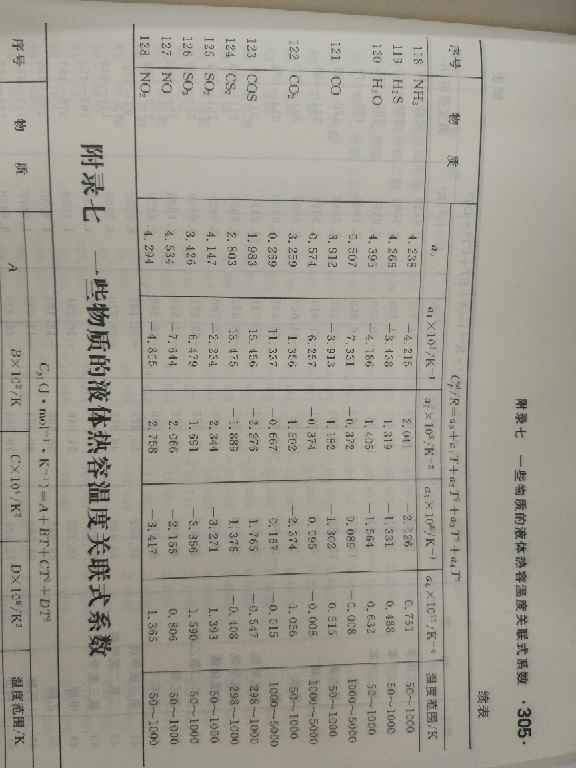 附录七 一些物质的液体热容温度关联式系数 ·305·
续表
序号 物 质
温度范围/K
118 NH₃ 4.238 −4.215 2.041 −2.126 0.761 50~1000
119 H₂S 4.266 −3.438 1.319 −1.331 0.488 50~1000
120 H₂O 4.395 −4.186 1.405 −1.564 0.632 50~1000
−0.372 0.089 −0.008 1000~5000
121 CO 3.912 −3.913 1.182 −1.302 0.515 50~1000
0.574 6.257 −0.374 0.095 −0.008 1000~5000
122 CO₂ 3.259 1.356 1.502 −2.374 1.056 50~1000
0.269 11.337 −0.667 0.167 −0.015 1000~5000
123 COS 1.983 15.456 1.765 −0.547 298~1000
124 CS₂ 2.803 −1.889 1.376 −0.408 298~1000
4.147 −2.234 2.344 −3.271 1.393 50~1000
126 3.426 6.479 1.691 −3.356 1.590 50~1000
127 NO 4.534 −7.644 2.066 −2.156 0.806 50~1000
128 4.294 2.758 −3.417 1.365 50~1000
附录七 一些物质的液体热容温度关联式系数
序号 物 质
A
温度范围/K